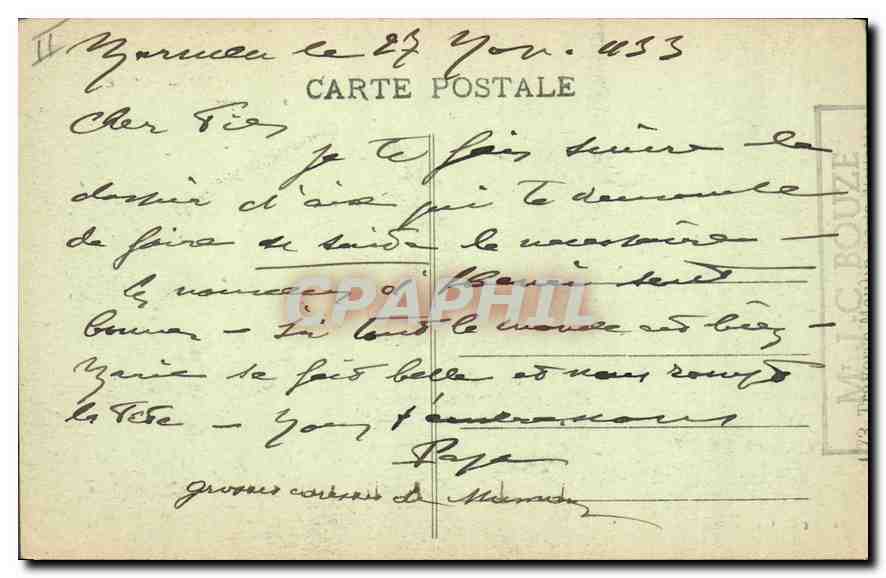 II
le 27 Nov. 1933
CARTE POSTALE
Cher Fils
je te fais suivre le
dossier d'aix qui te demande
de faire de suite le nécessaire —
les nouvelles d' sont
bonnes — ici tout le monde est bien —
Marie se fait belle et nous rompt
la tête — Nous t'embrassons
Papa
grosses caresses de Maman
CPAPHIL
M J.C. BOUZE